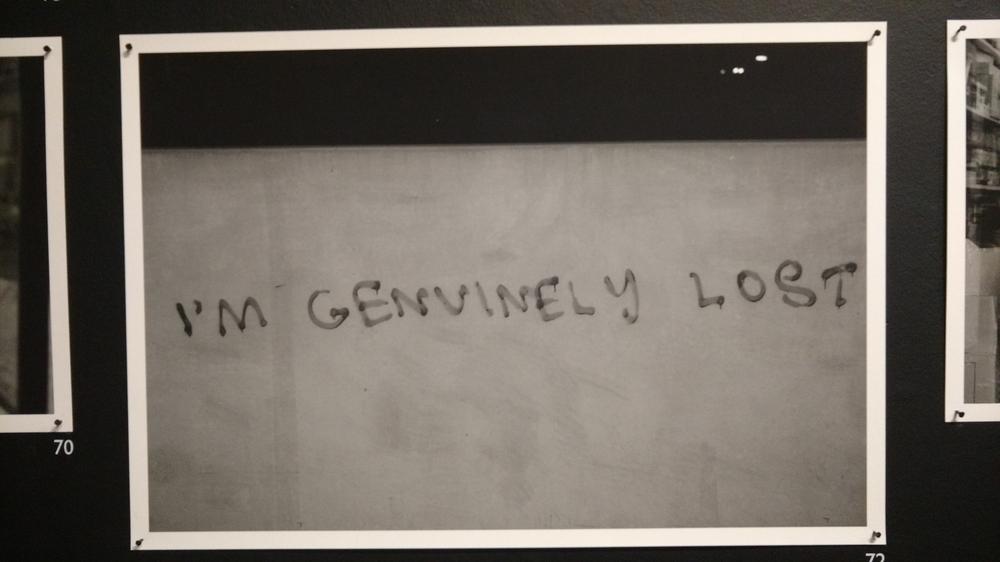 I'M GENUINELY LOST
70
72